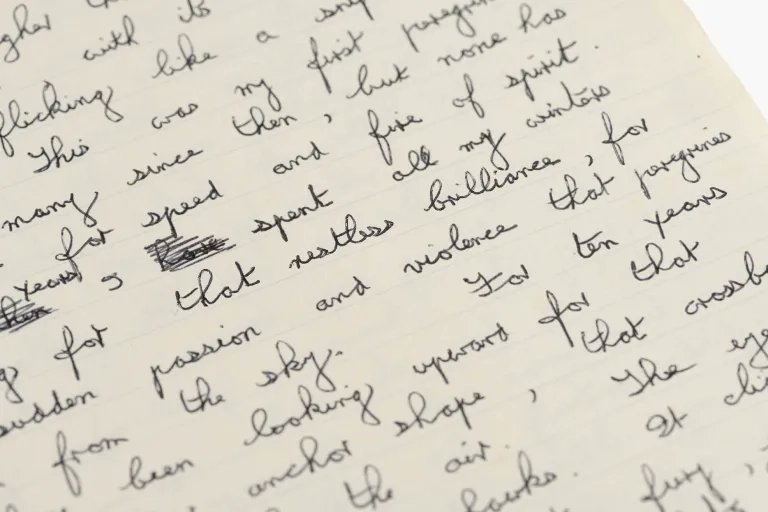 with its
flicking like a
This was my first peregrine
many since then, but none has
for speed and fire of spirit.
Years, I spent all my winters
for that restless brilliance, for
sudden passion and violence that peregrines
from the sky. For ten years
been looking upward for that
anchor shape, that crossb
the air. The eye
hawks. It cli
fury,